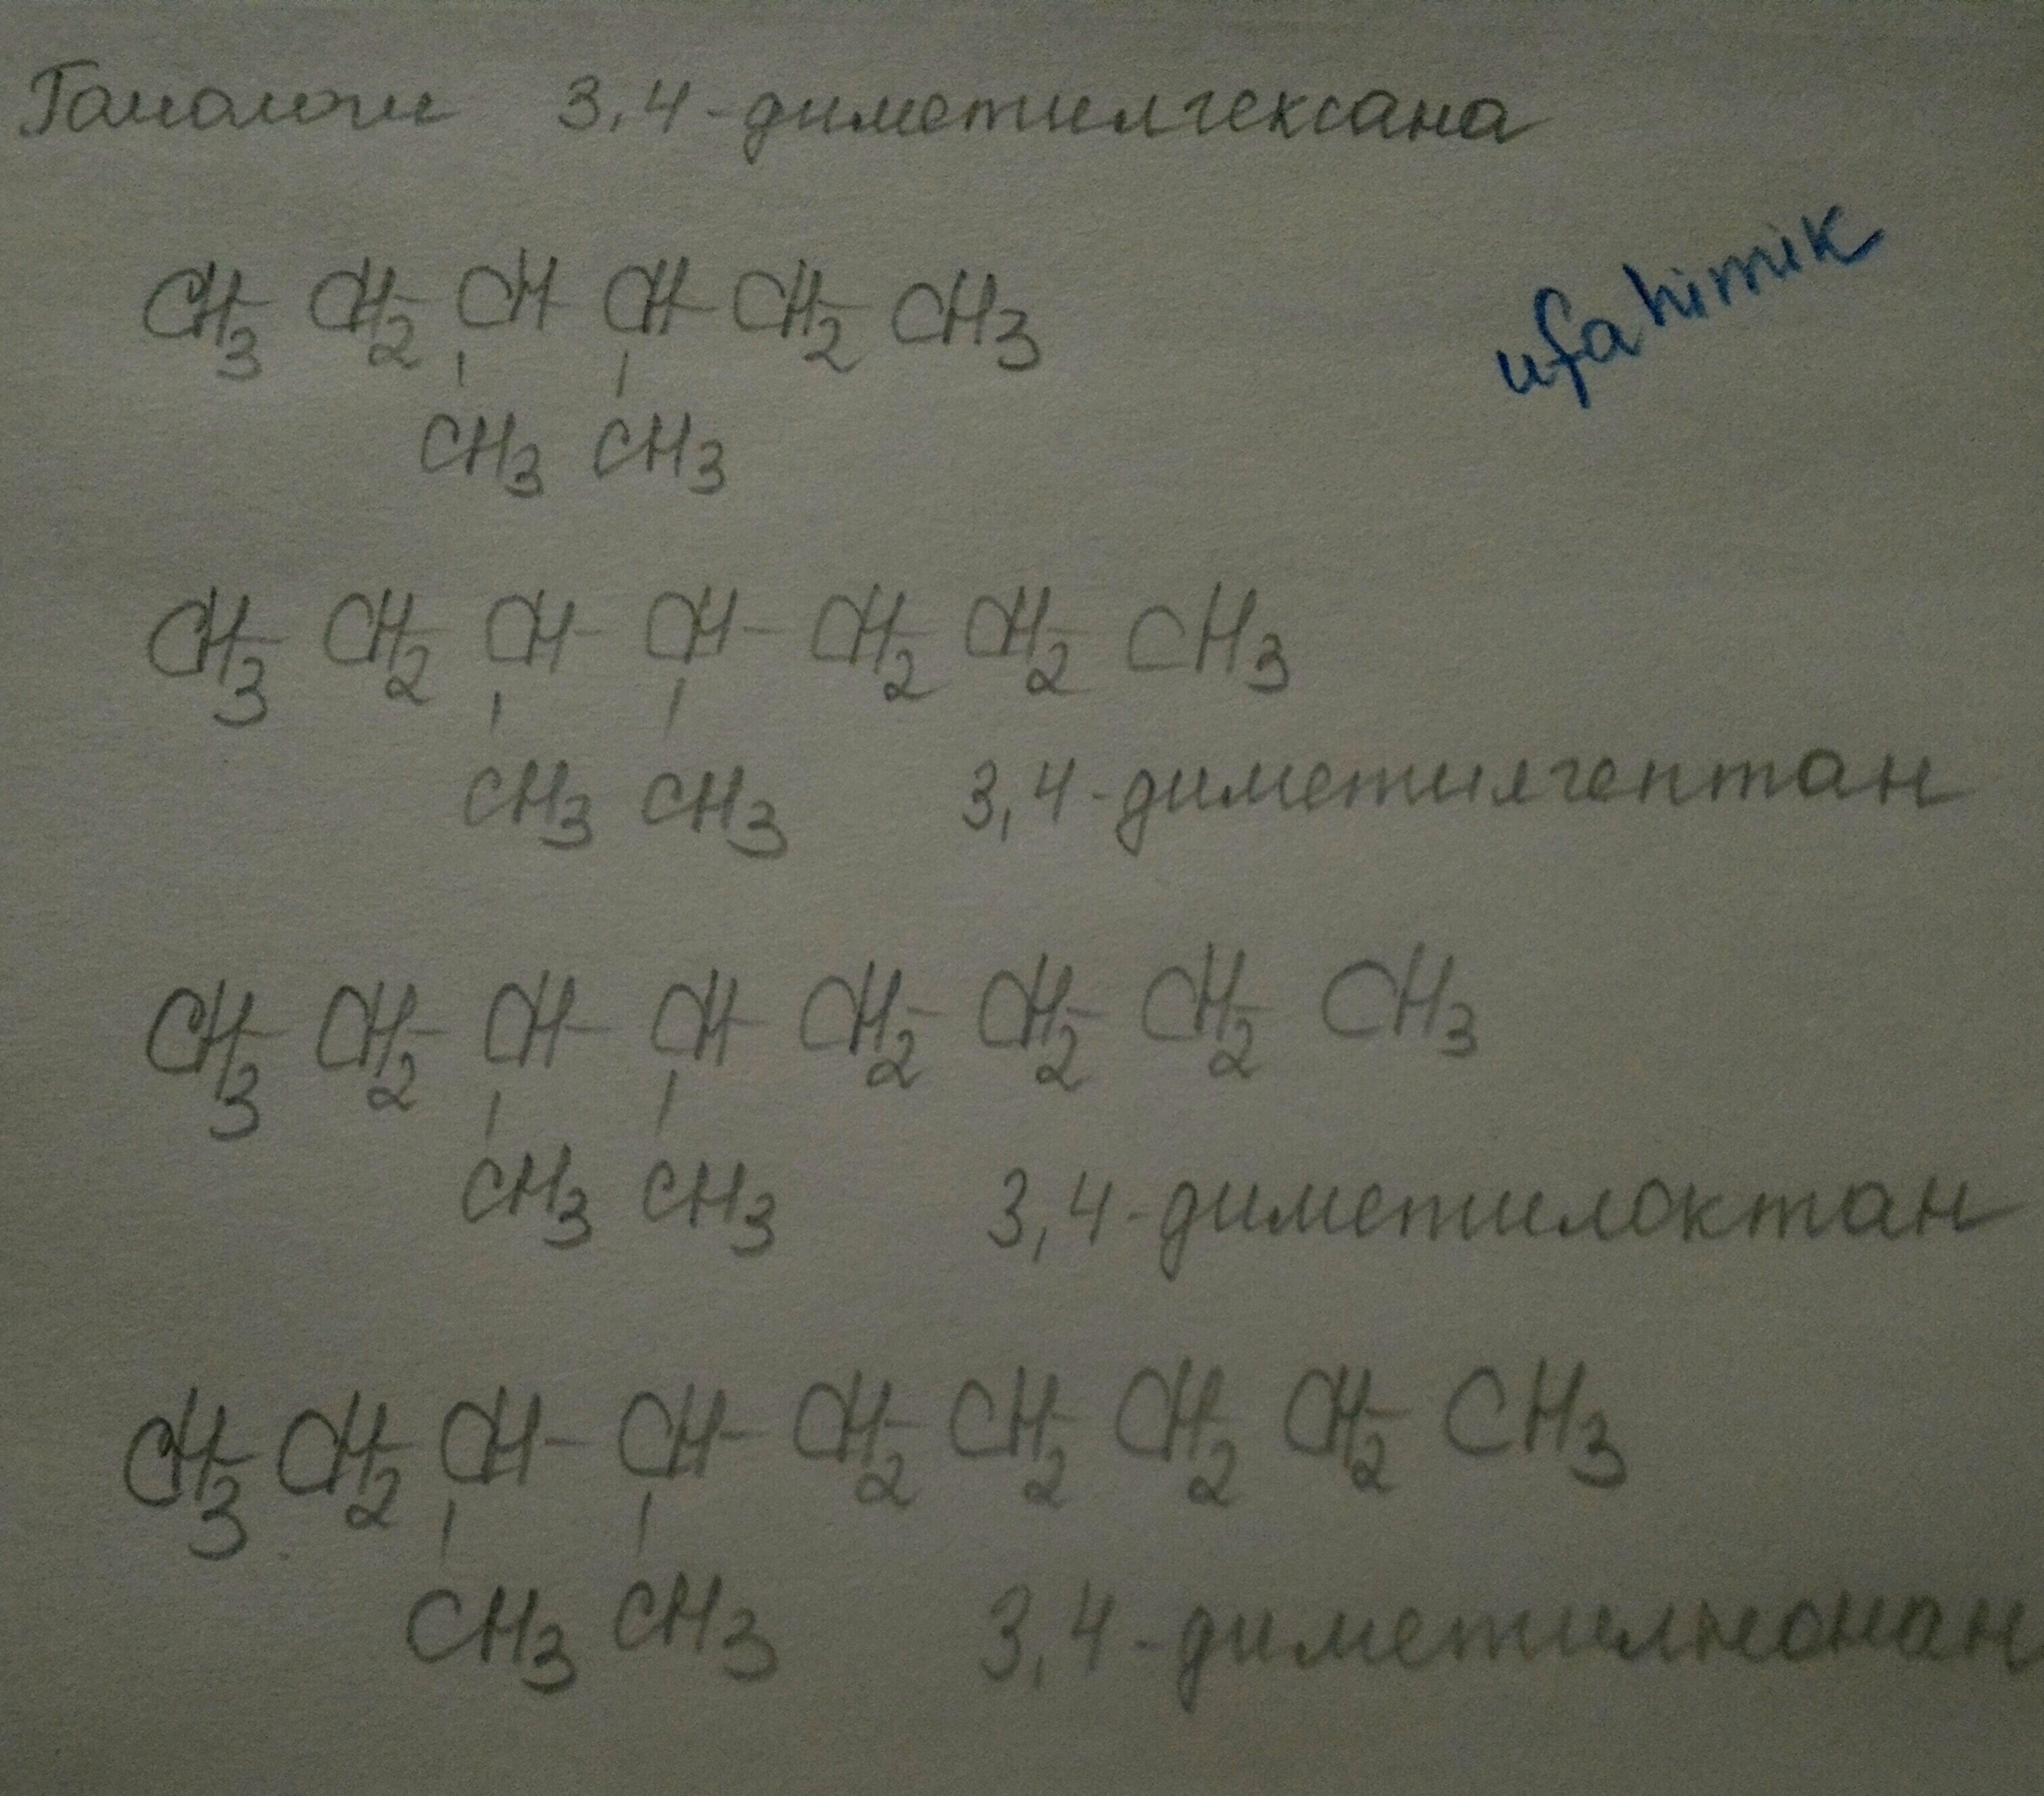 Гомологи 3,4-диметилгексана
ufahimik
CH3-CH2-CH-CH-CH2-CH3
CH3 CH3
CH3-CH2-CH-CH-CH2-CH2-CH3
CH3 CH3 3,4-диметилгептан
CH3-CH2-CH-CH-CH2-CH2-CH2-CH3
CH3 CH3 3,4-диметилоктан
CH3-CH2-CH-CH-CH2-CH2-CH2-CH2-CH3
CH3 CH3 3,4-диметилнонан